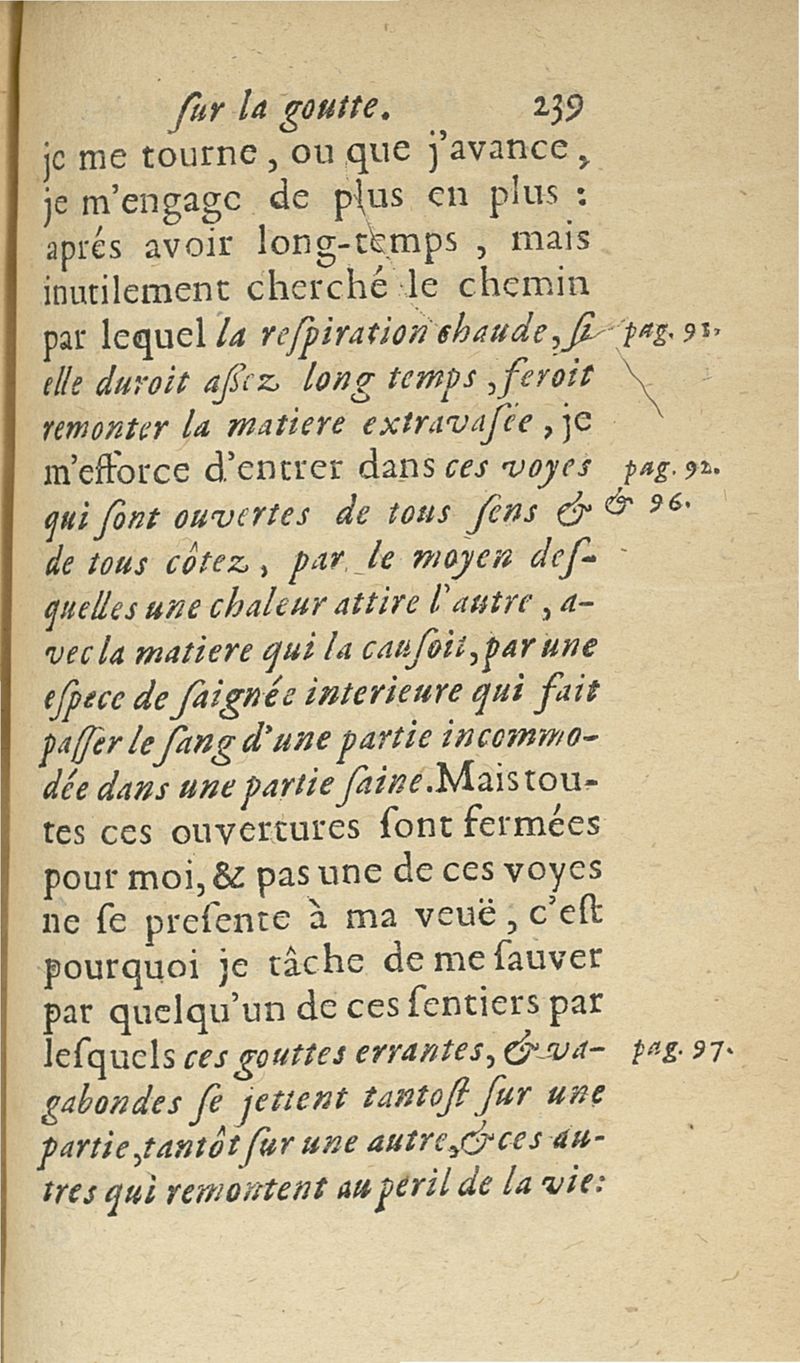 ſur la goutte. 239
je me tourne, ou que j'avance,
je m'engage de plus en plus :
aprés avoir long-temps, mais
inutilement cherché le chemin
par lequel la reſpiration chaude, ſi pag. 91.
elle duroit aſſez long temps, feroit
remonter la matiere extravaſée, je
m'efforce d'entrer dans ces voyes pag. 92.
qui ſont ouvertes de tous ſens & & 96.
de tous côtez, par le moyen deſ-
quelles une chaleur attire l'autre, a-
vec la matiere qui la cauſoit, par une
eſpece de ſaignée interieure qui fait
paſſer le ſang d'une partie incommo-
dée dans une partie ſaine. Mais tou-
tes ces ouvertures ſont fermées
pour moi, & pas une de ces voyes
ne ſe preſente à ma veuë, c'eſt
pourquoi je tâche de me ſauver
par quelqu'un de ces ſentiers par
leſquels ces gouttes errantes, & va- pag. 97.
gabondes ſe jettent tantoſt ſur une
partie, tantôt ſur une autre, & ces au-
tres qui remontent au peril de la vie: